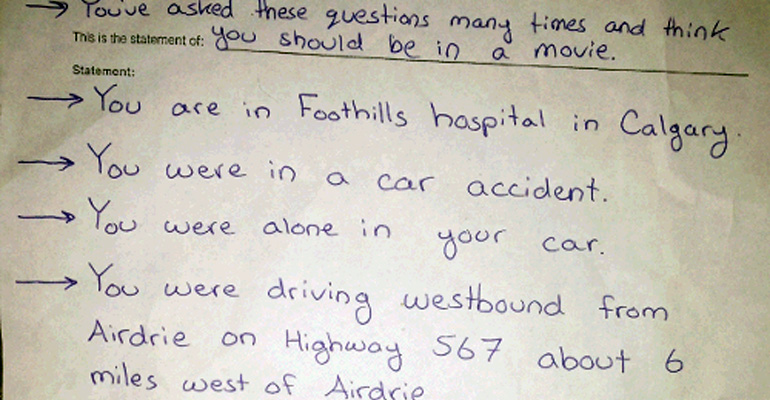 → You've asked these questions many times and think
This is the statement of: you should be in a movie.
Statement:
→ You are in Foothills hospital in Calgary.
→ You were in a car accident.
→ You were alone in your car.
→ You were driving westbound from
Airdrie on Highway 567 about 6
miles west of Airdrie